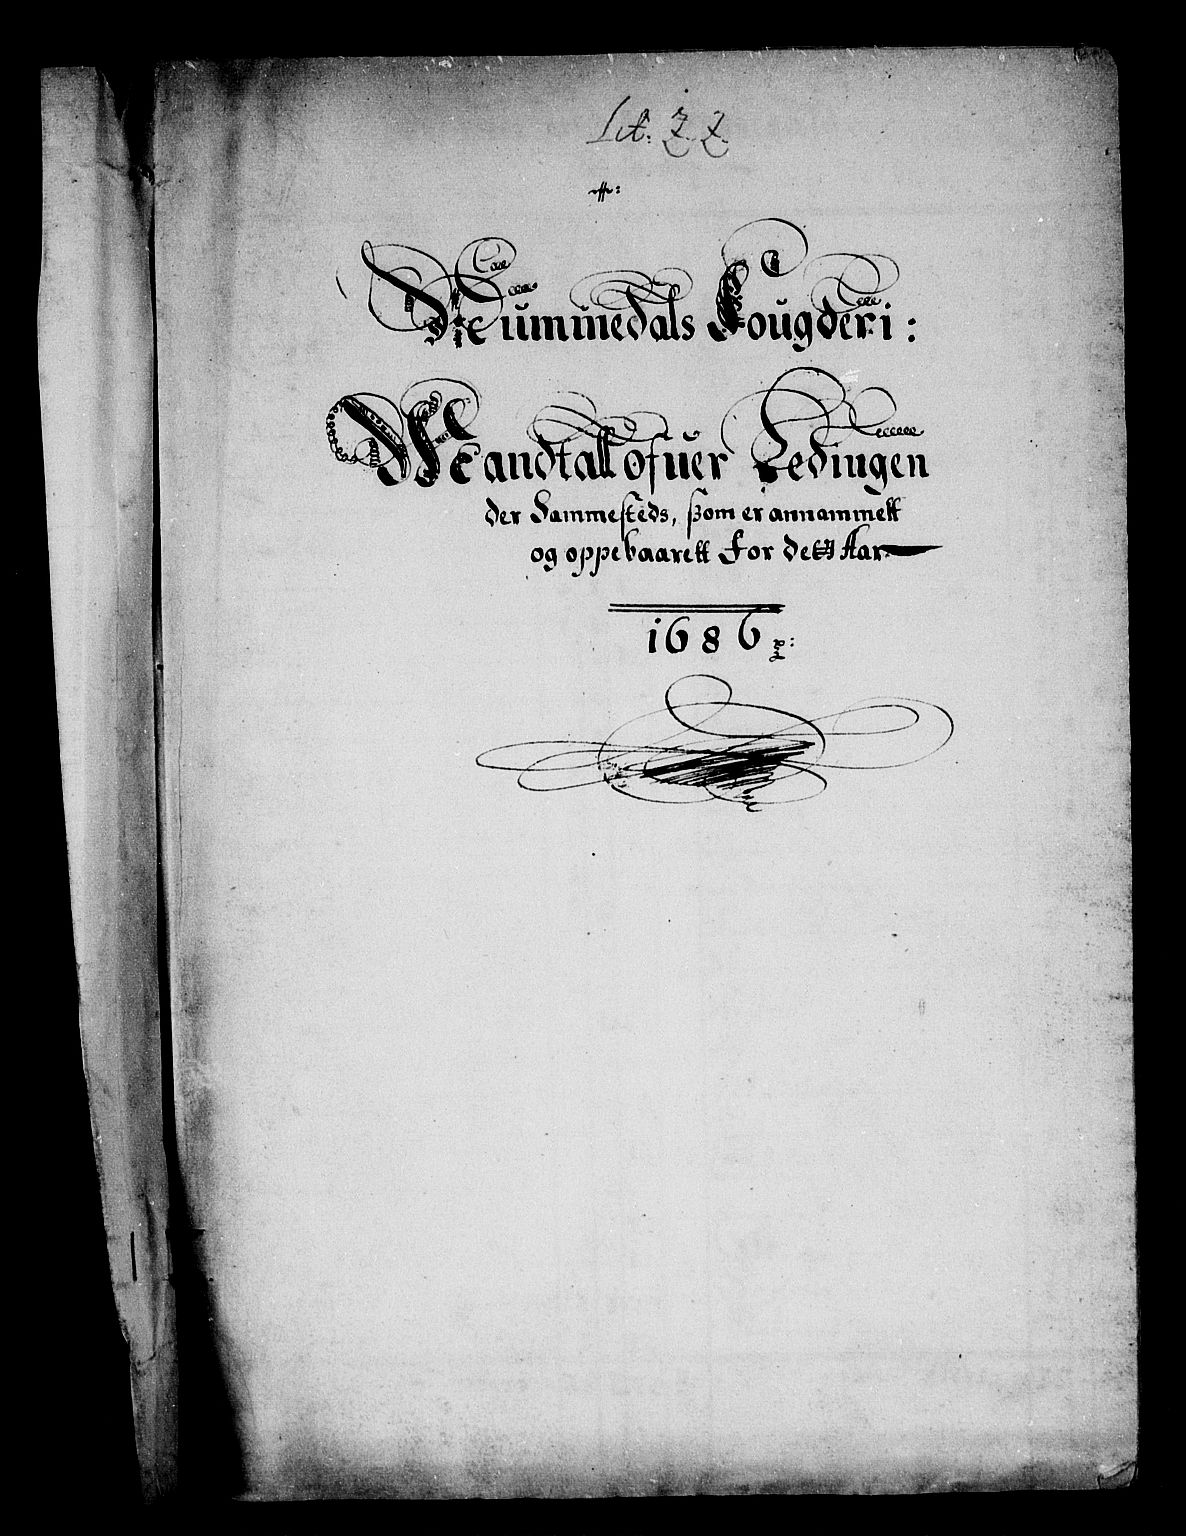 Lit. Z Z.
Nummedals Fougderi:
Mandtall ofuer Ledingen
der Sammesteds, som er annammett
og oppebaarett For dett Aar
1686